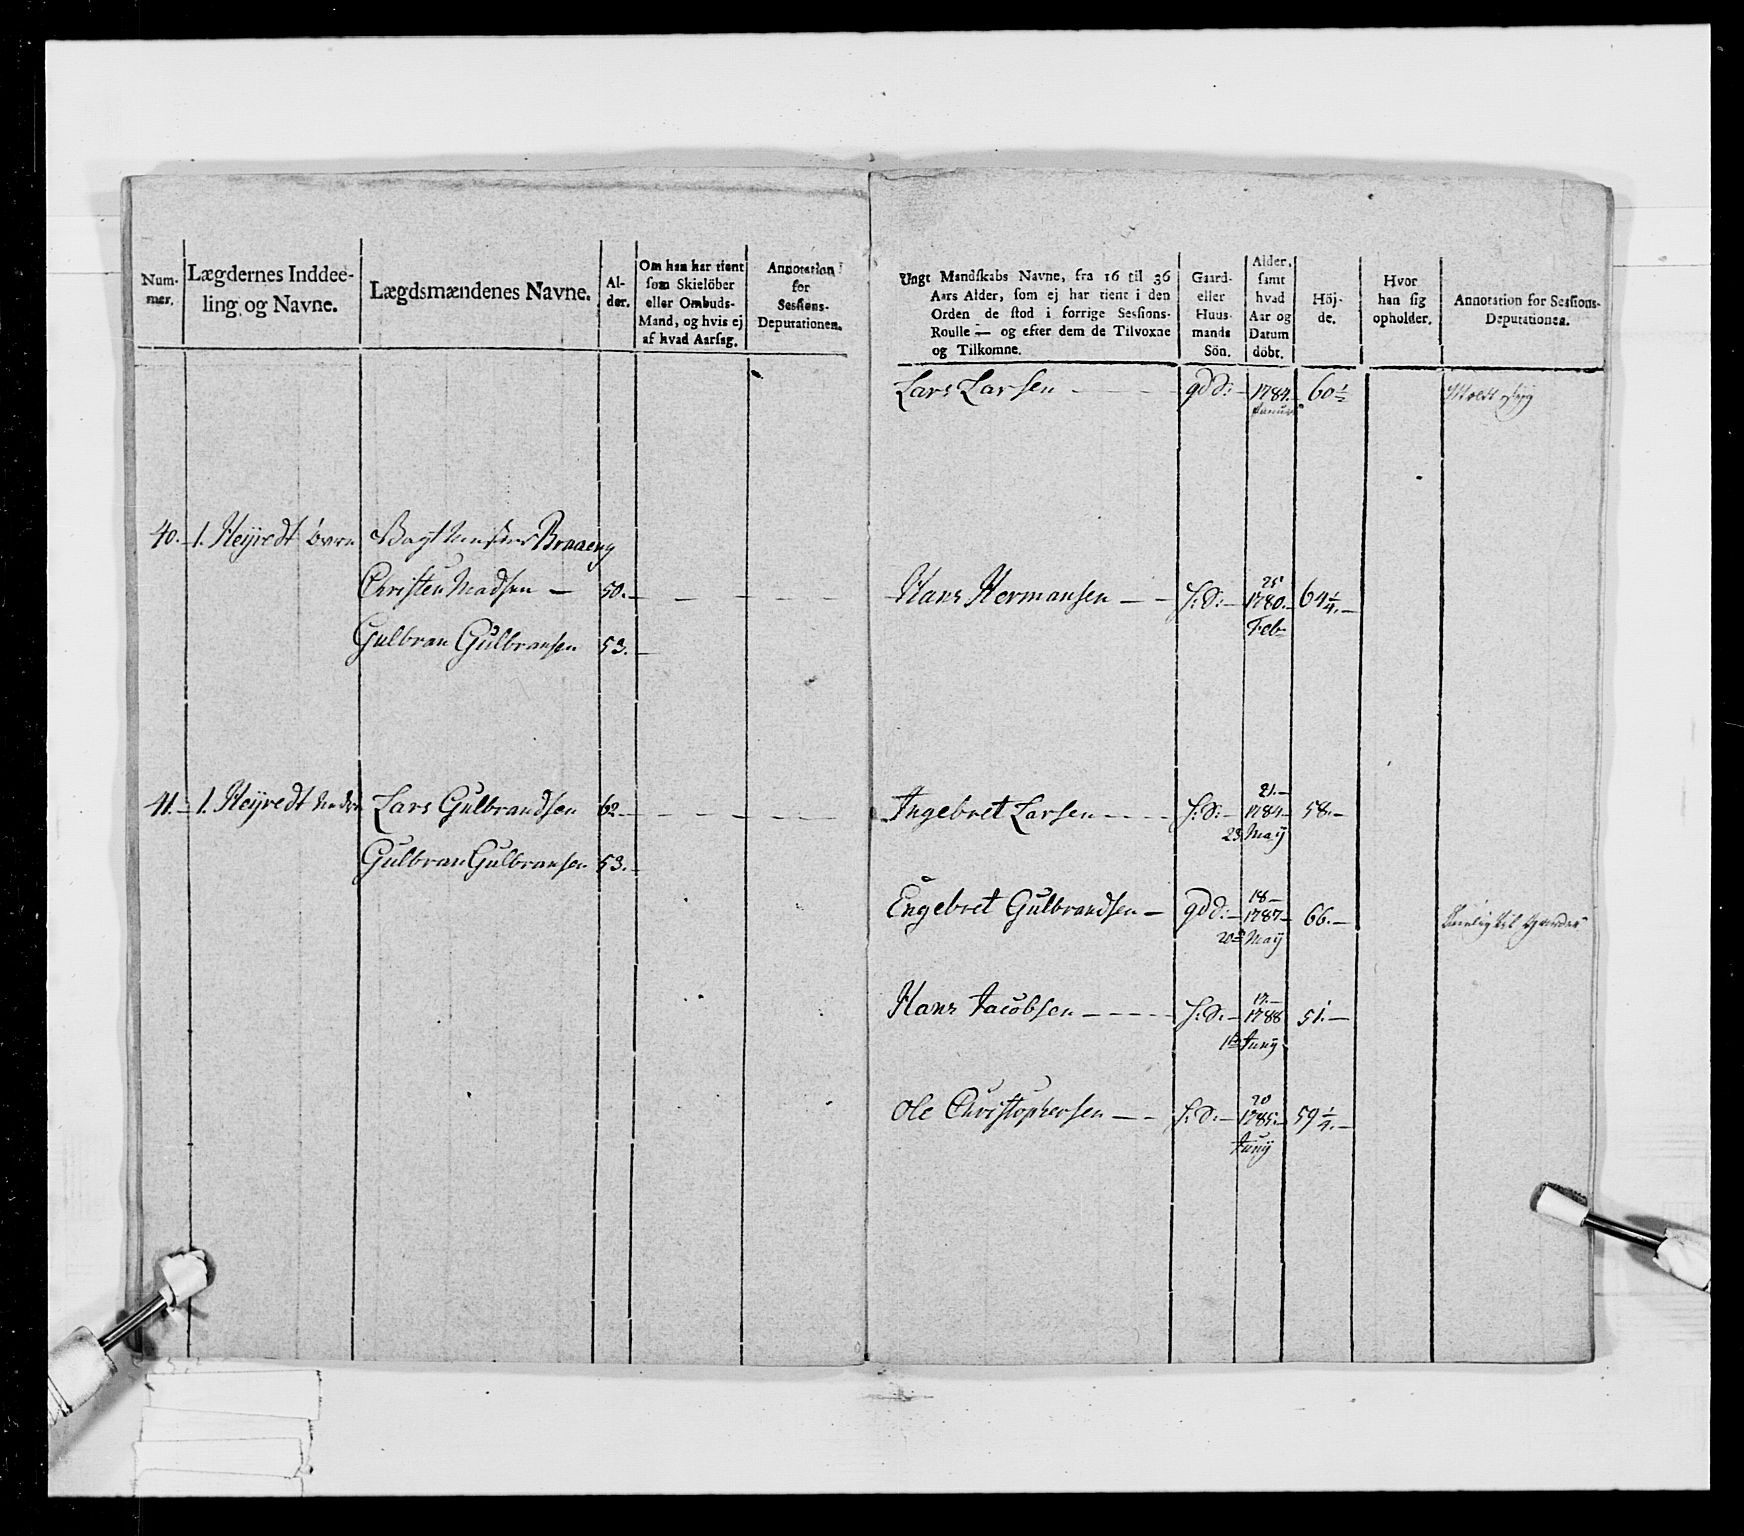 Num-
mer.
Lægdernes Inddee-
ling og Navne.
Lægdsmændenes Navne.
Al-
der.
Om han har tient
som Skielöber
eller Ombuds-
Mand, og hvis ej
af hvad Aarsag.
Annotation
for
Sessions-
Deputationen.
40. 1. Heÿredt övre
Braaeng
Christen Madsen — 50. —
Gulbran Gulbransen 53. —
41. — 1. Heÿredt Nedre Lars Gulbrandsen 62. —
Gulbran Gulbransen 53. —
Ungt Mandskabs Navne, fra 16 til 36
Aars Alder, som ej har tient i den
Orden de stod i forrige Sessions-
Roulle — og efter dem de Tilvoxne
og Tilkomne.
Gaard-
eller
Huus-
mands
Sön.
Alder,
samt
hvad
Aar og
Datum
döbt.
Höj-
de.
Hvor
han sig
opholder.
Annotation for Sessions-
Deputationen.
Lars Larsen — gdd: — 1784. — 60 1/2
Januar
25
Hans Hermansen — — f: d: — 1780. — 64 1/4. —
Feb
21. —
Ingebret Larsen — — f: d: — 1784 — 58. —
23 Maÿ
18 —
Engebret Gulbrandsen — gdd: — 1787 — 66. —
20de Maÿ
17. —
Hans Jacobsen — — — f: d: — 1788 51. —
1te Junÿ
20
Ole Christophersen — — f: d: — 1785. — 59 1/4. —
Junÿ